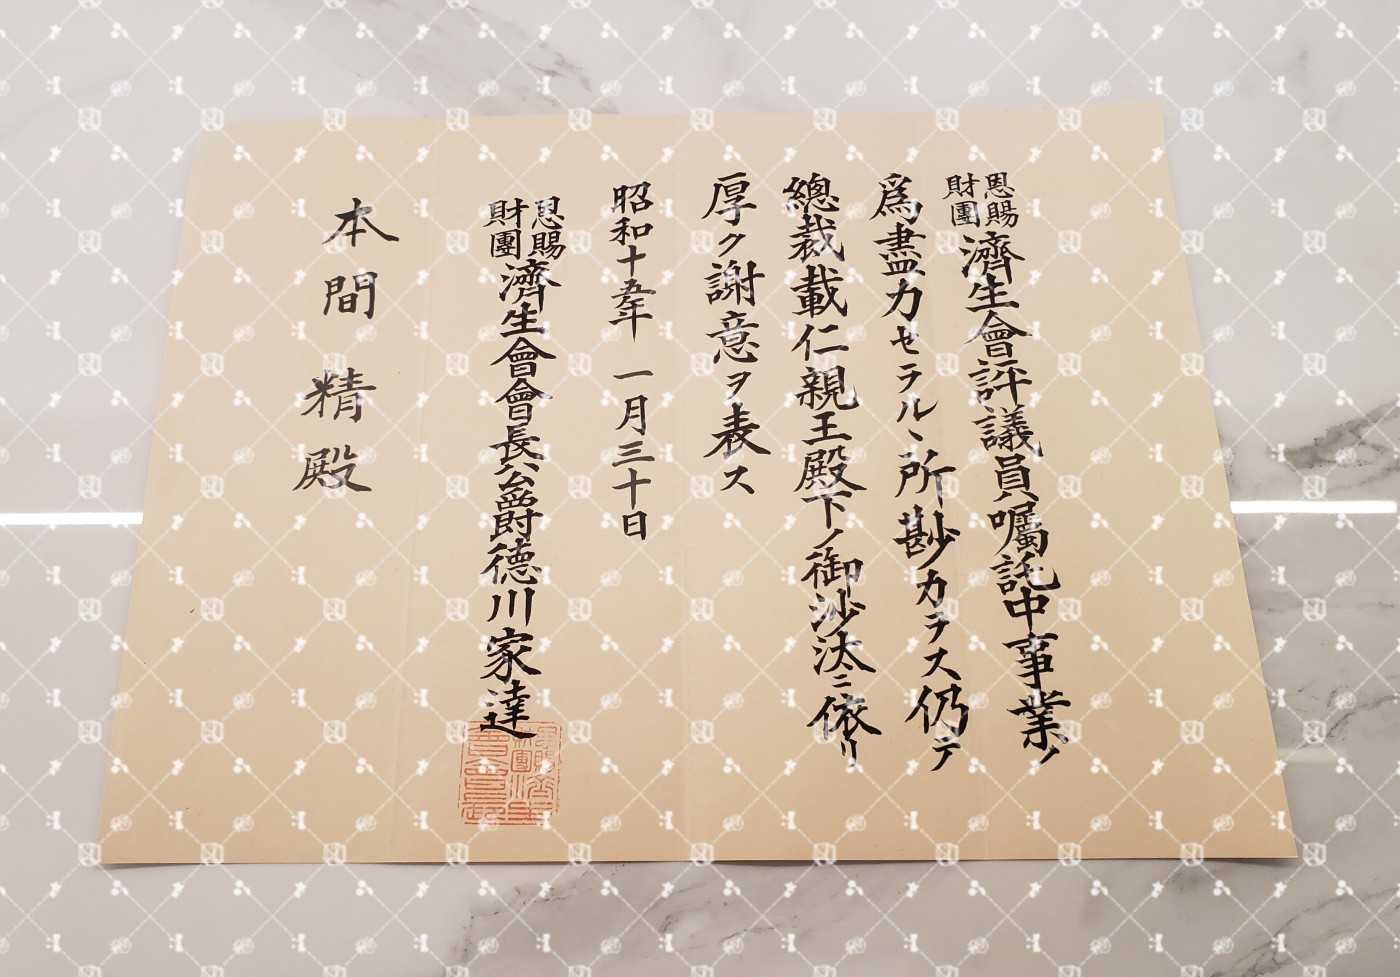 恩賜財團濟生會評議員囑託中事業ノ
爲盡力セラルヽ所尠カラス仍テ
總裁載仁親王殿下ノ御沙汰ニ依リ
厚ク謝意ヲ表ス
昭和十五年一月三十日
恩賜財團濟生會會長公爵德川家達
本間精殿